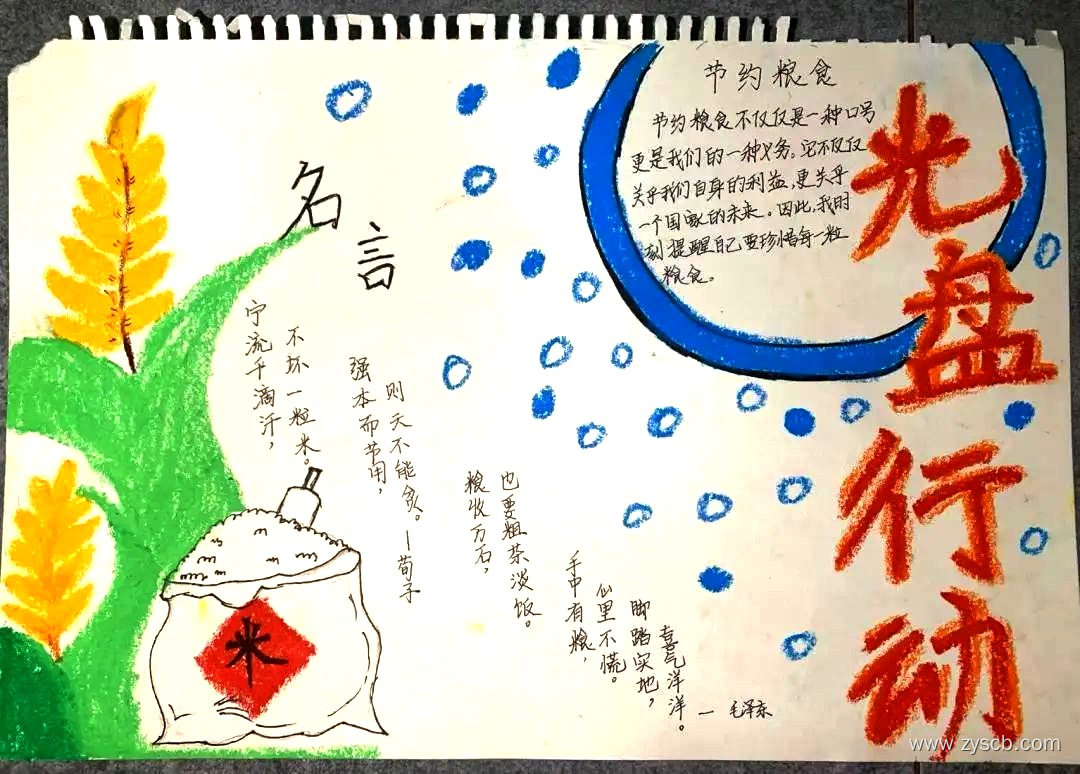 节约粮食
节约粮食不仅仅是一种口号
更是我们的一种义务。它不仅仅
关乎我们自身的利益,更关乎
一个国家的未来。因此,我时
刻提醒自己要珍惜每一粒
粮食。
光盘行动
名言
宁流千滴汗,
不坏一粒米。
强本而节用,
则天不能。—荀子
粮收万石,
也要粗茶淡饭。
手中有粮,
心里不慌。
脚踏实地,
喜气洋洋。
— 毛泽东
米
www.zyscb.com